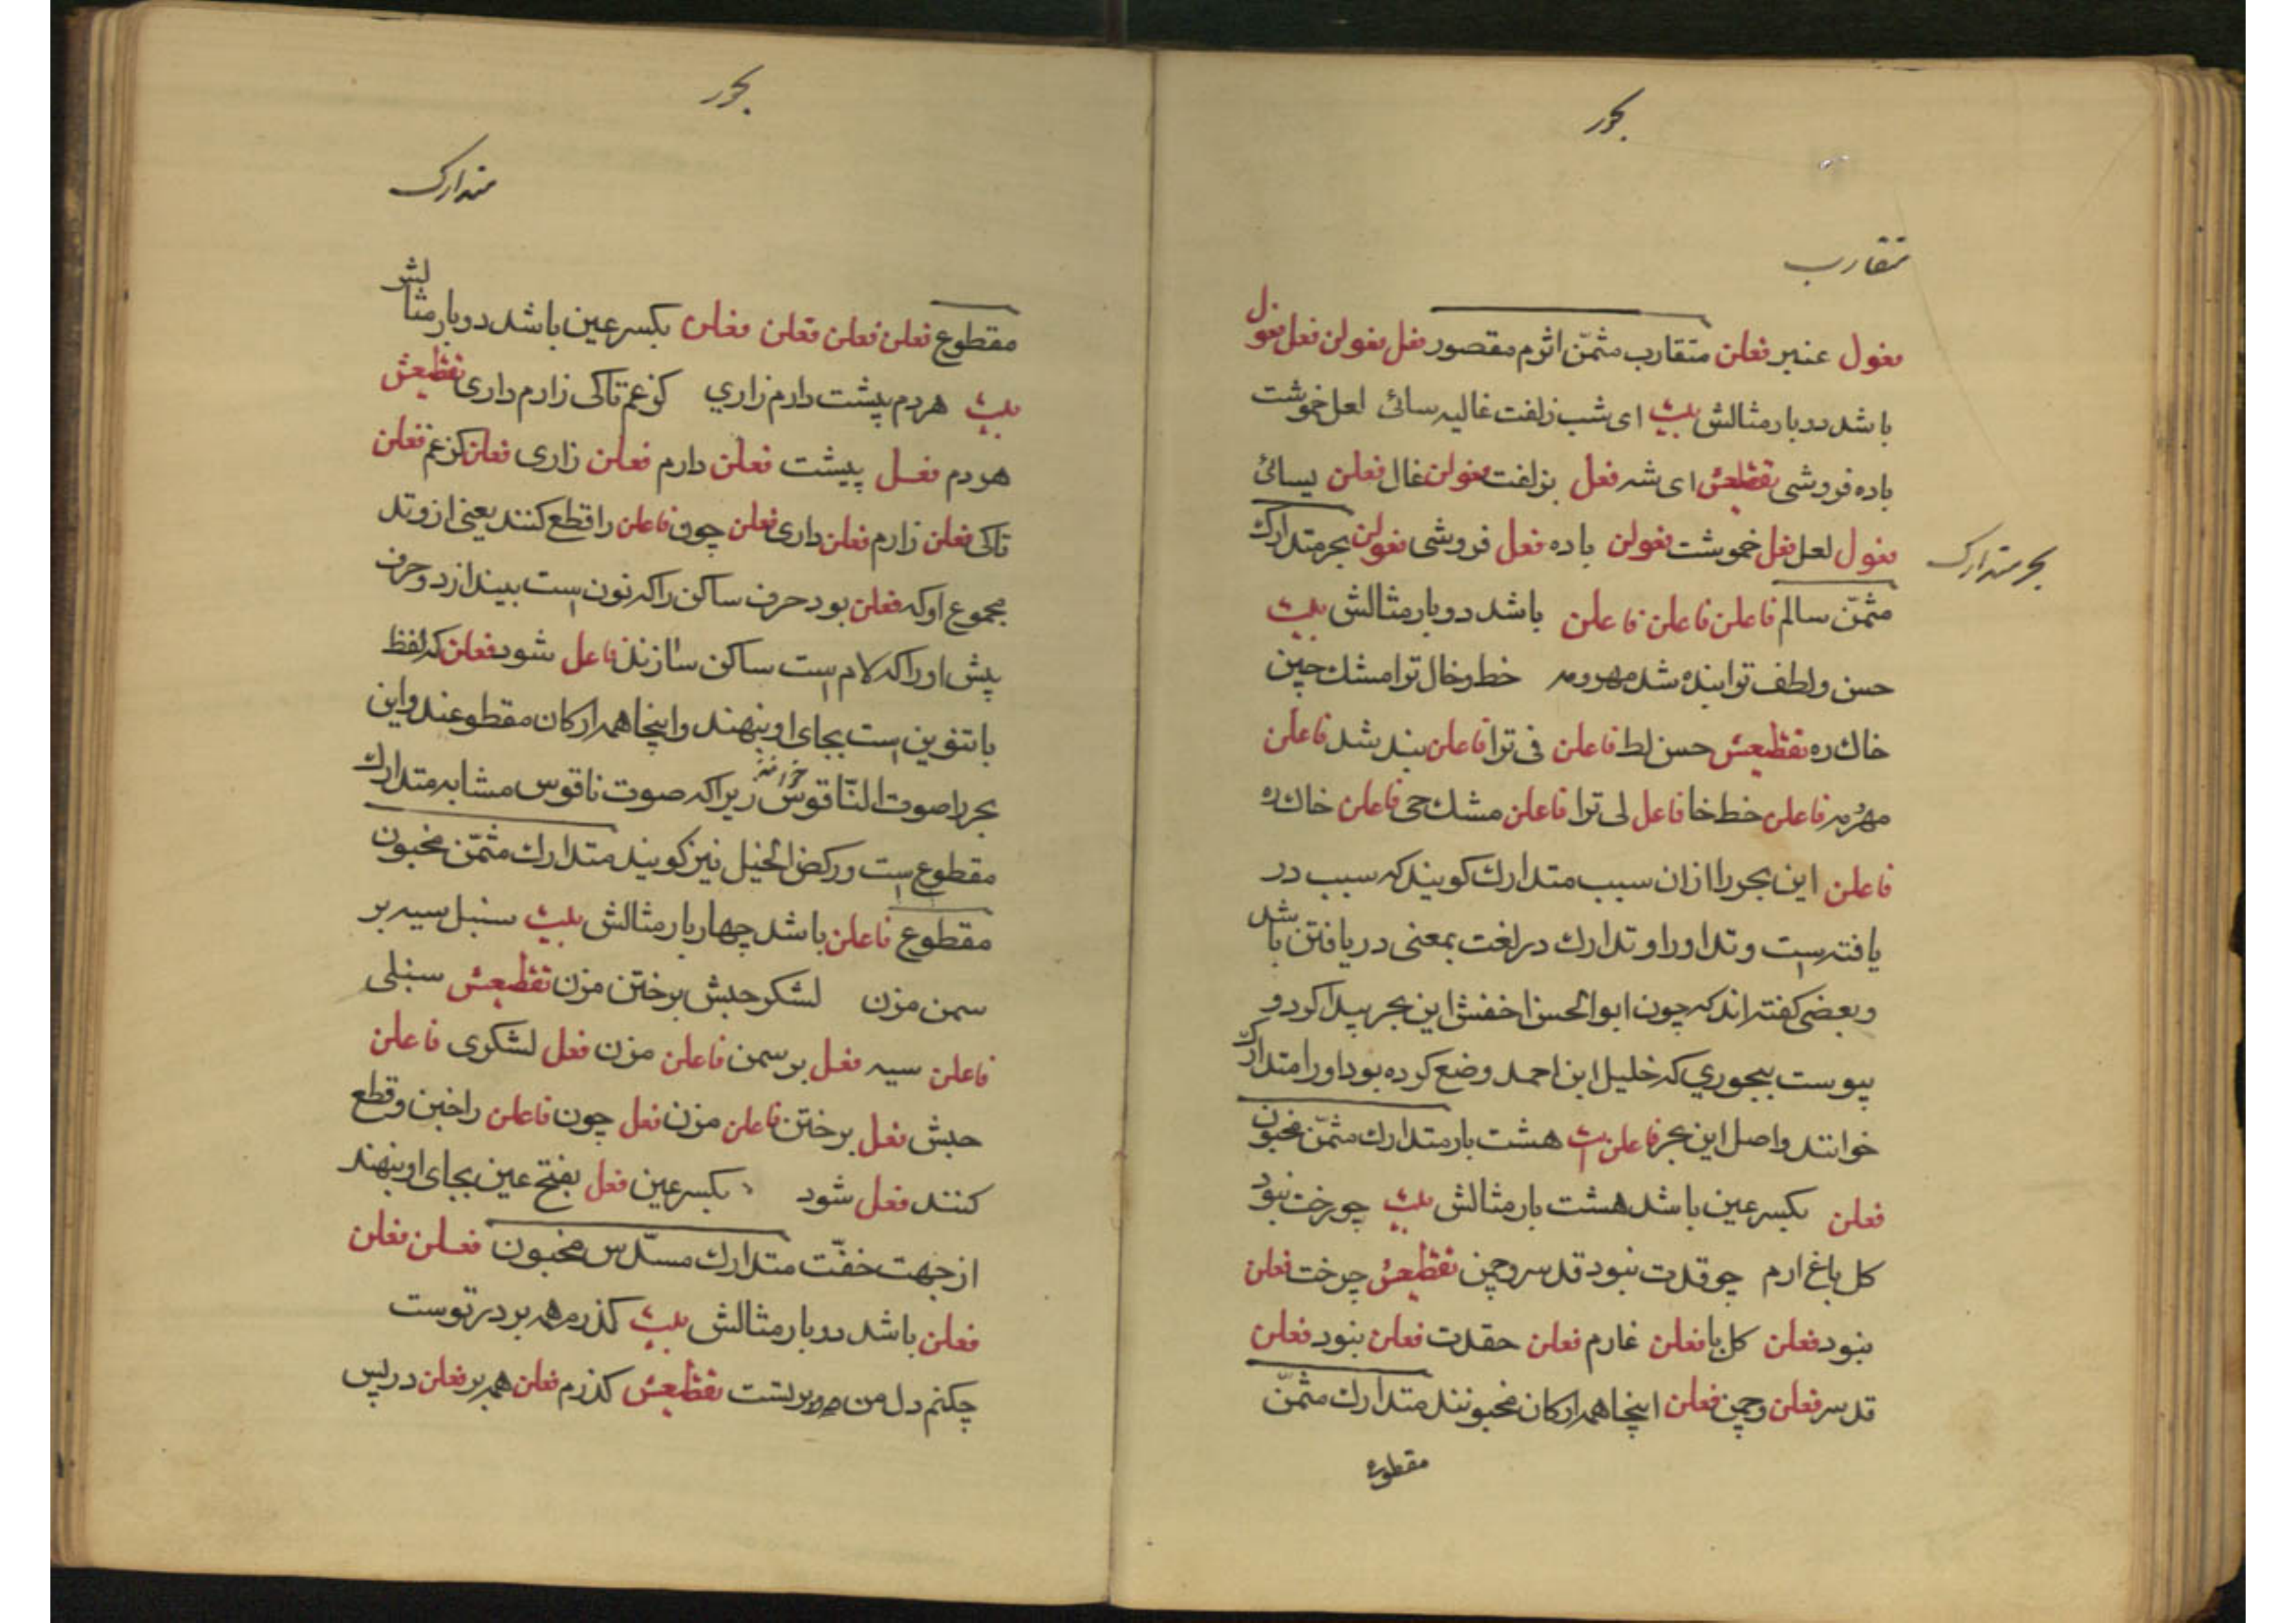 بحور
متقارب
فعول عنبر فعلن متقارب مثمّن اثرم مقصور فعل فعولن فعل فعول
باشد دو بار مثالش بیت ای شب زلفت غالیه سائی لعل خموشت
باده فروشی تقطیعش ای شه فعل بزلفت فعولن غال فعلن یسائی
فعول لعل فعل خموشت فعولن باده فعل فروشی فعولن بحر متدارک
بحر متدارک
مثمّن سالم فاعلن فاعلن فاعلن باشد دو بار مثالش بیت
حسن و لطف ترا بنده شد مهر و مه خط و خال ترا مشك چین
خاك ره تقطیعش حسن لط فاعلن فی ترا فاعلن بند شد فاعلن
مهر مه فاعلن خط خا فاعل لی ترا فاعلن مشك چی فاعلن خاك ره
فاعلن این بحر را ازان سبب متدارك کویند که سبب در
یافته است وتد اورا و تدارك در لغت بمعنی دریافتن باشد
و بعضی کفته اند که چون ابو الحسن اخفش این بحر پیدا کرد و
پیوست ببحوري که خلیل ابن احمد وضع کرده بود اورا متدارك
خوانند و اصل این بحر فاعلن است هشت بار متدارك مثمّن مخبون
فعلن بکسر عین باشد هشت بار مثالش بیت چو رخت نبود
کل باغ ارم چو قدت نبود قد سرو چمن تقطیعش چرخت فعلن
نبود فعلن کل با فعلن غارم فعلن حقدت فعلن نبود فعلن
قد سر فعلن و چمن فعلن اینجا همه ارکان مخبونند متدارك مثمّن
مقطوع
بحور
متدارک
مقطوع فعلن فعلن فعلن فعلن بکسر عین باشد دو بار مثالش
بیت هر دم پیشت دارم زاري کز غم تاکی زارم داری تقطیعش
هر دم فعل پیشت فعلن دارم فعلن زاری فعلن کز غم فعلن
تاکی فعلن زارم فعلن داری فعلن چون فاعلن را قطع کنند یعنی از وتد
مجموع او که فعلن بود حرف ساکن را که نون است بیندازد و حرف
پیش او را که لام است ساکن سازند فاعل شود فعلن که لفظ
با تنوین است بجای او بنهند و اینجا همه ارکان مقطوعند و این
بحر را صوت النّاقوس خوانند زیرا که صوت ناقوس مشابه متدارك
مقطوع است و رکض الخیل نیز کویند متدارك مثمّن مخبون
مقطوع فاعلن باشد چهار بار مثالش بیت سنبل سیه بر
سمن مزن لشکر حبش بر ختن مزن تقطیعش سنبلی
فاعلن سیه فعل بر سمن فاعلن مزن فعل لشکری فاعلن
حبش فعل بر ختن فاعلن مزن فعل چون فاعلن را خبن و قطع
کنند فعل شود بکسر عین فعل بفتح عین بجای او بنهند
از جهت خفّت متدارك مسدّس مخبون فعلن فعلن
فعلن باشد دو بار مثالش بیت کذرم همه بر در توست
چکنم دل من بر تست تقطیعش کذرم فعلن همه بر فعلن در پس